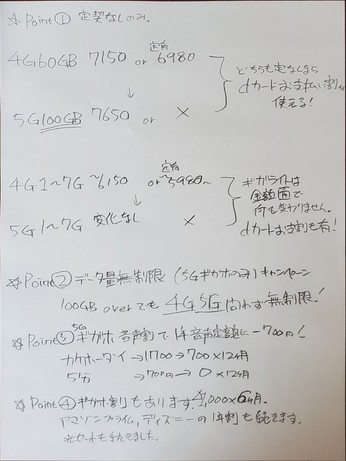 ☆Point① 定契なしのみ。
4G60GB 7150 or 定有 6980
どちらも定なしなら
dカードお支払い割が
使える!
↓
5G100GB 7650 or ×
4G1~7G ~6150 or 定有 ~5980~
↓
5G1~7G 変化なし ×
ギガライトは
金額面で
何も変わりません。
dカードお支割も有!
☆Point② データ量無制限 (5Gギガホのみ) キャンペーン
100GB overでも 4G5G 問わず無制限!
☆Point③ 5Gギガホ音声割で1年音声定額に-700円!
カケホーダイ→1700→700×12ヶ月
5分 →700円→0×12ヶ月
☆Point④ ギガホ割もあります。 1,000×6ヶ月。
アマゾンプライム、ディズニーの1年割も続きます。
光セットも